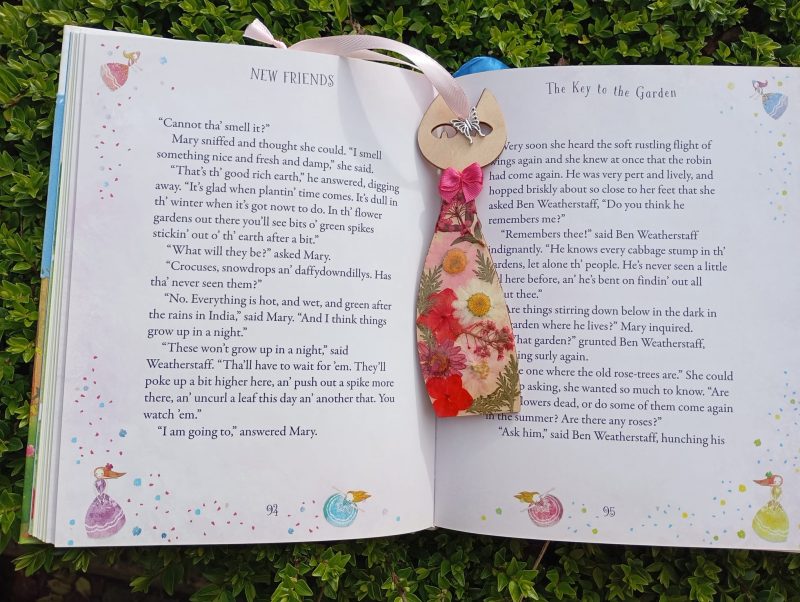 NEW FRIENDS
“Cannot tha’ smell it?”
Mary sniffed and thought she could. “I smell
something nice and fresh and damp,” she said.
“That’s th’ good rich earth,” he answered, digging
away. “It’s glad when plantin’ time comes. It’s dull in
th’ winter when it’s got nowt to do. In th’ flower
gardens out there you’ll see bits o’ green spikes
stickin’ out o’ th’ earth after a bit.”
“What will they be?” asked Mary.
“Crocuses, snowdrops an’ daffydowndillys. Has
tha’ never seen them?”
“No. Everything is hot, and wet, and green after
the rains in India,” said Mary. “And I think things
grow up in a night.”
“These won’t grow up in a night,” said
Weatherstaff. “Tha’ll have to wait for ’em. They’ll
poke up a bit higher here, an’ push out a spike more
there, an’ uncurl a leaf this day an’ another that. You
watch ’em.”
“I am going to,” answered Mary.
94
The Key to the Garden
Very soon she heard the soft rustling flight of
wings again and she knew at once that the robin
had come again. He was very pert and lively, and
hopped briskly about so close to her feet that she
asked Ben Weatherstaff, “Do you think he
remembers me?”
“Remembers thee!” said Ben Weatherstaff
indignantly. “He knows every cabbage stump in th’
gardens, let alone th’ people. He’s never seen a little
here before, an’ he’s bent on findin’ out all
thee.”
things stirring down below in the dark in
garden where he lives?” Mary inquired.
garden?” grunted Ben Weatherstaff,
surly again.
one where the old rose-trees are.” She could
asking, she wanted so much to know. “Are
flowers dead, or do some of them come again
in the summer? Are there any roses?”
“Ask him,” said Ben Weatherstaff, hunching his
95